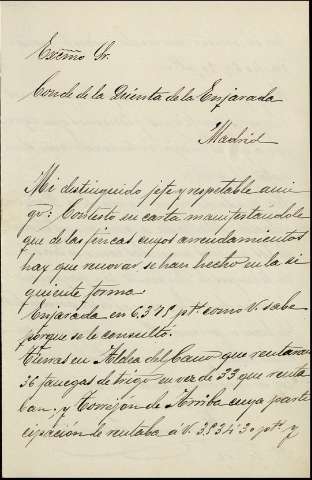 ExCmo Sr.
Conde de la Quinta de la Enjarada
Madrid
Mi distinguido jefe y respetable ami-
go: Contesto su carta manifestándole
que de las fincas cuyos arrendamientos
hay que renovar, se han hecho en la si
guiente forma:
Enjarada en 6.375 pts. como V. sabe
porque se le consultó.
Tierras en Aldea del Cano que rentaran
36 fanegas de trigo en vez de 33 que renta
ban. y Torrejón de Arriba cuya parti
cipación le rentaba á V. 3.934'30 pts. y